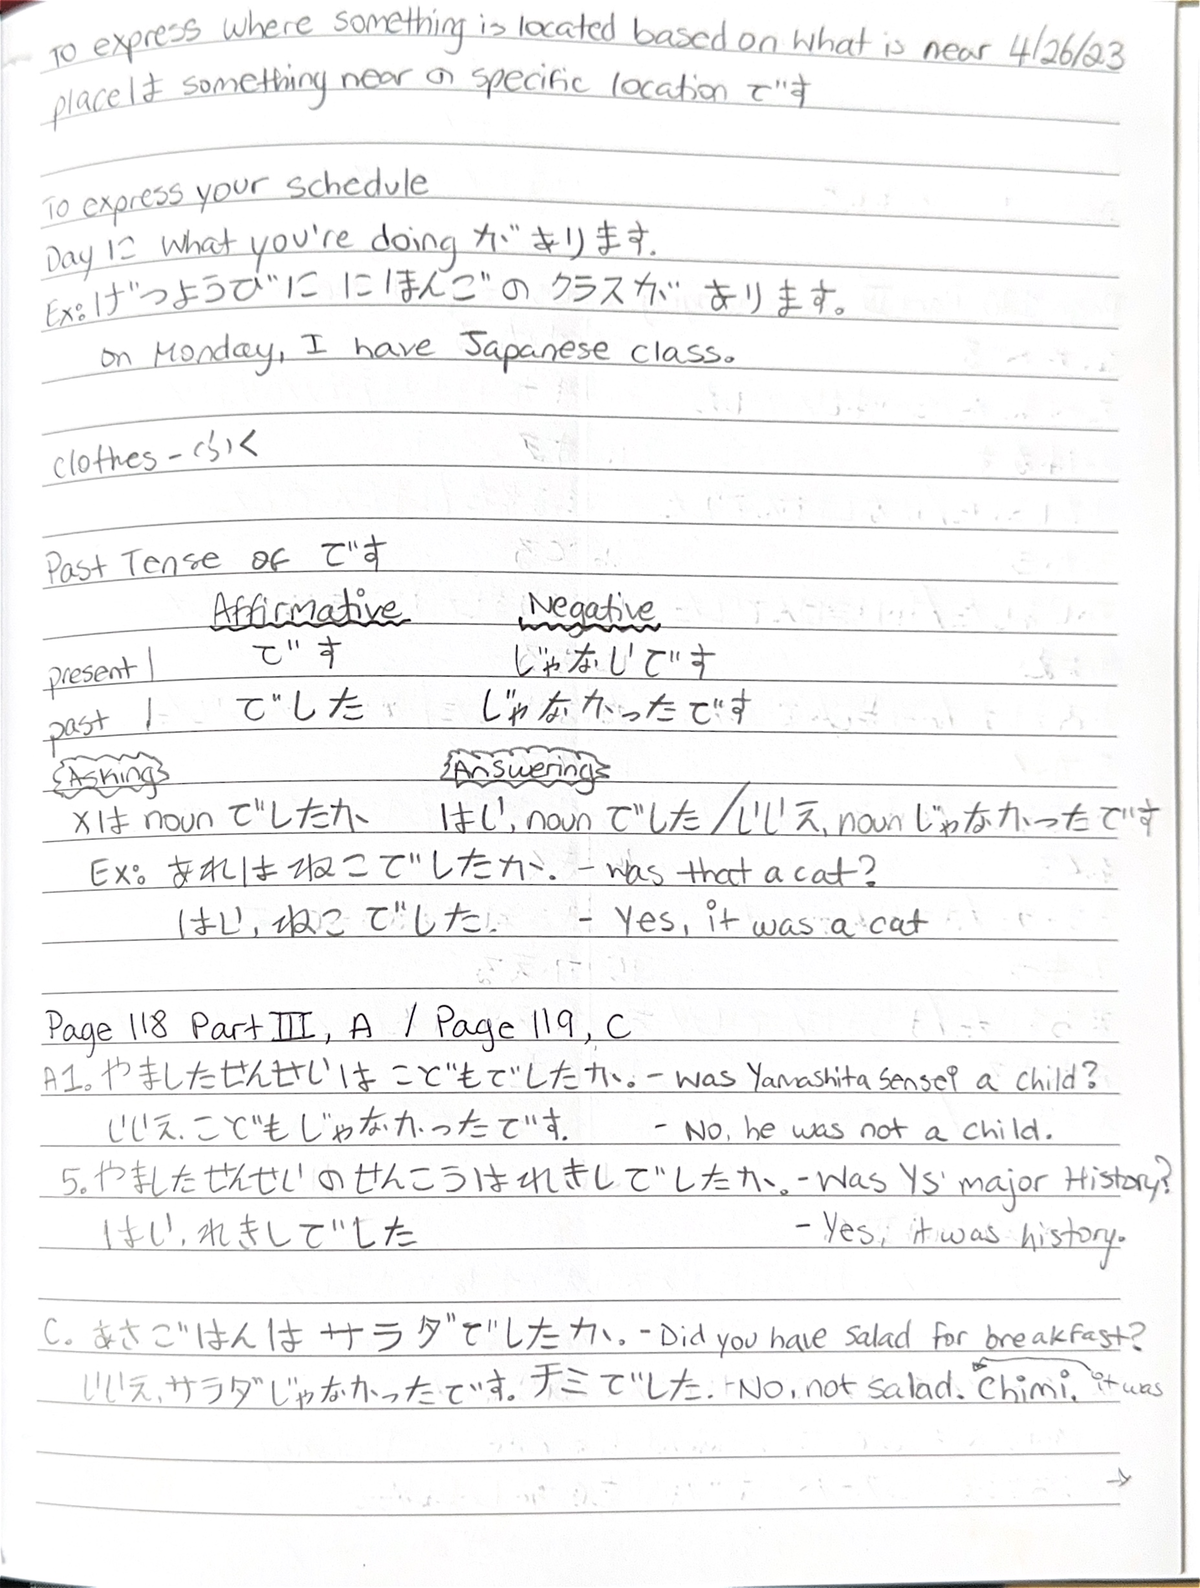 To express where something is located based on what is near 4/26/23
placeは something near の specific location です
To express your schedule
Day に what you're doing が あります.
Ex: げつようびに にほんごの クラスが あります。
on Monday, I have Japanese class.
clothes - ふく
Past Tense of です
Affirmative Negative
present | です じゃないです
past | でした じゃなかったです
Asking Answering
Xは noun でしたか はい, noun でした/いいえ, noun じゃなかったです
Ex: あれは ねこでしたか. - was that a cat?
はい, ねこ でした. - Yes, it was a cat
Page 118 Part III, A / Page 119, C
A1. やましたせんせいは こどもでしたか。- Was Yamashita Sensei a child?
いいえ. こども じゃなかったです. - No, he was not a child.
5. やましたせんせいのせんこうはれきしでしたか。- Was YS' major History?
はい, れきしでした - Yes, it was history.
C. あさごはんは サラダでしたか。- Did you have salad for breakfast?
いいえ, サラダじゃなかったです。チミでした. - No, not salad. Chimi, it was
→